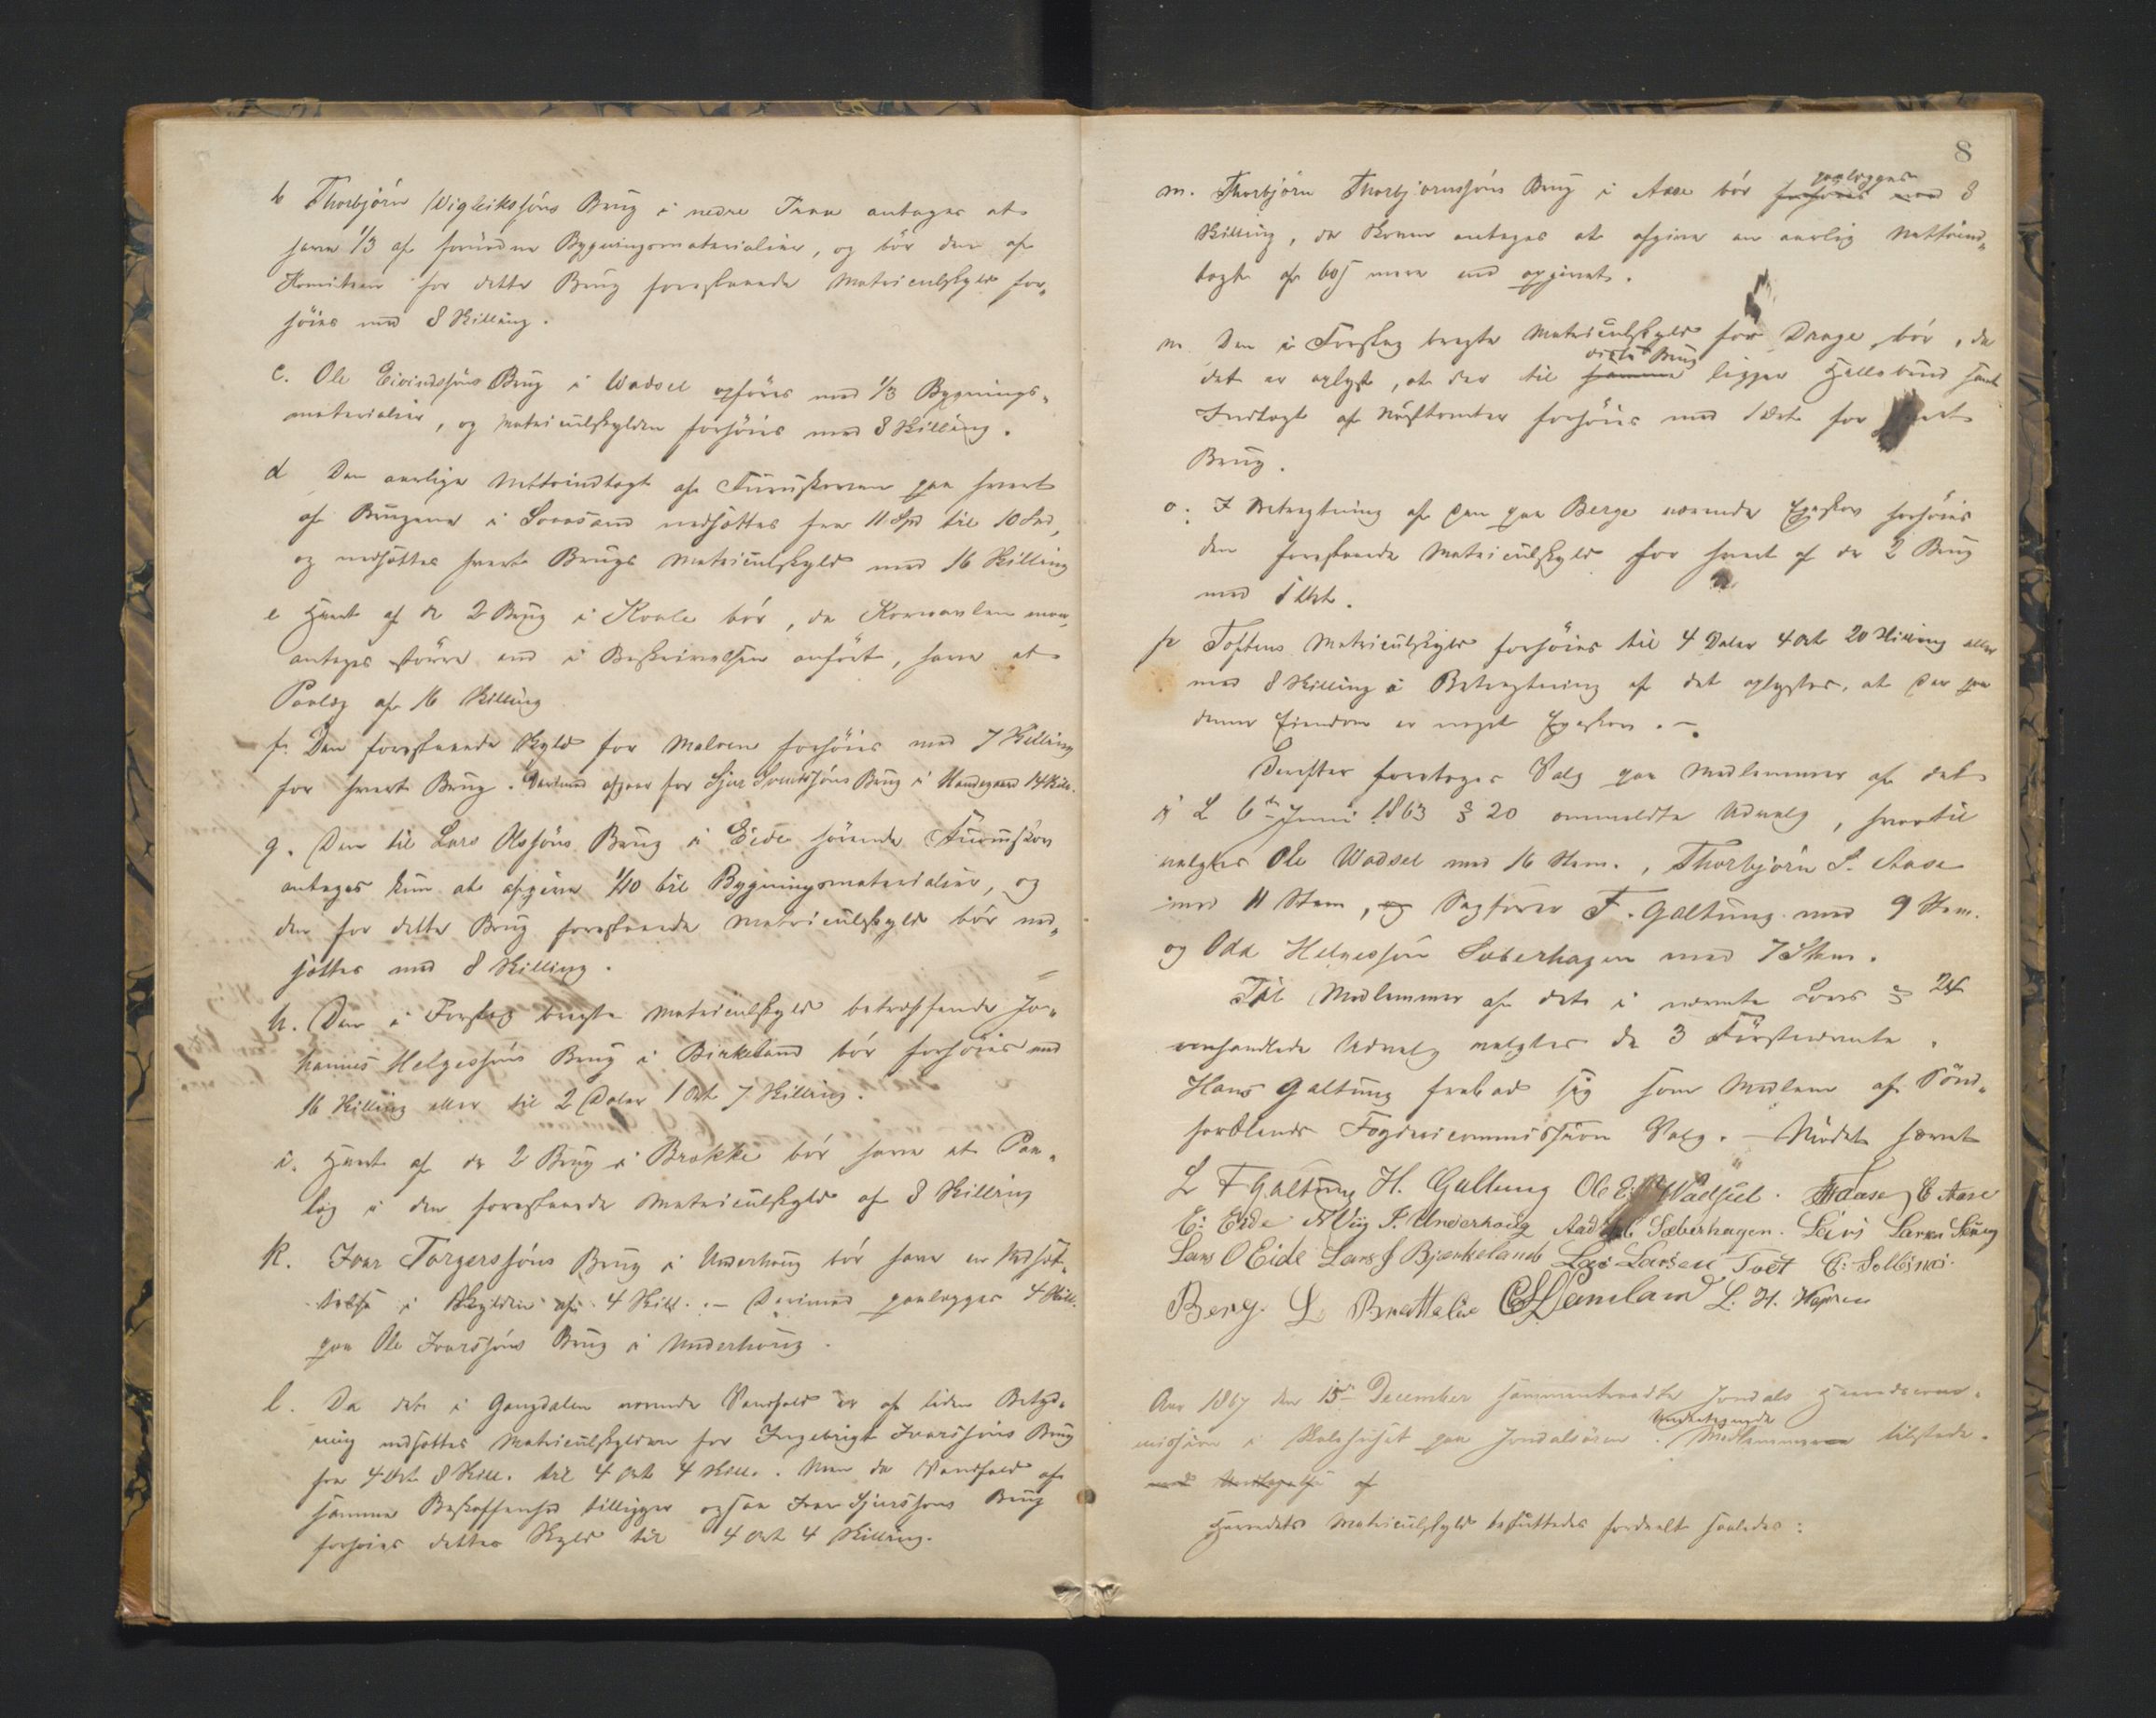 b Thorbjörn Wigleikssöns Brug i nedre Traa antages at
have 1/3 af fornödne Bygningsmaterialier, og bör den af
Komiteen for dette Brug foreslaaede Matriculskyld for„
höies med 8 Skilling.
c. Ole Eivindssöns Brug i Wadsel opföres med 1/3 Bygnings„
materialier, og Matriculskylden forhöies med 8 Skilling.
d Den aarlige Nettoindtægt af Furuskoven paa hvert
af Brugene i nedsættes fra 11 Spd til 10 Spd,
og nedsættes hvert Brugs Matriculskyld med 16 Skilling
e Hvert af de 2 Brug i Kvale bör, da Kornavlen maa
antages större end i Beskrivelsen anfört, have et
Paalæg af 16 Skilling
f. Den foreslaaede Skyld for Malven forhöies med 7 Skilling
for hvert Brug. Derimod afgaar for Sjur Brug i
g. Den til Lars Olssöns Brug i Eide hörende Furuskov
antages kun at afgive 1/10 til Bygningsmaterialier, og
den for dette Brug foreslaaede Matriculskyld bör ned„
sættes med 8 Skilling.
h. Den i Forslag bragte Matriculskyld betræffende Jo„
hannes Helgessöns Brug i Birkeland bör forhöies med
16 Skilling eller til 2 Daler 1 Ort 7 Skilling.
i. Hvert af de 2 Brug i Brække bör have et Paa„
læg i den foreslaaede Matriculskyld af 8 Skilling
k. Ivar Torgerssöns Brug i Underhoug bör have en Nedsæt„
telse i Skylden af 4 Skill. – Derimod paalægges 4 Skill.
paa Ole Ivarssöns Brug i Underhoug.
l. Da det i Gangdalen værende Vandfald er af liden Betyd„
ning nedsættes Matriculskylden for Ingebrigt Ivarssöns Brug
fra 4 Ort 8 Skill. til 4 Ort 4 Skill. Men da Vandfald af
samme Beskaffenhed tilligger ogsaa Ivar Sjurssöns Brug
forhöies dettes Skyld til 4 Ort 4 Skilling.
8
m. Thorbjörn Thorbjörnssöns Brug i Aase bör forhöies med paalægges 8
Skilling, da Skoven antages at afgive en aarlig Nettoind„
tægt af 60 ß mere end opgivet.
n. Den i Forslag bragte Matriculskyld for Drage bör, da
det er oplyst, at der til samme dette Brug ligger samt
Indtægt af Nöstetomter forhöies med 1 Ort for hvert
Brug.
o. I Betragtning af den paa Berge værende Egeskov forhöies
den foreslaaede Matriculskyld for hvert af de 2 Brug
med 1 Ort.
p Toftens Matriculskyld forhöies til 4 Daler 4 Ort 20 Skilling eller
med 8 Skilling i Betragtning af det oplystes, at der paa
denne Eiendom er noget Egeskov. –
Derefter foretoges Valg paa Medlemmer af det
i L 6te Juni 1863 § 20 ommeldte Udvalg, hvortil
valgtes Ole Wadsel med 16 Stem., Thorbjörn S. Aase
med 11 Stem, og Sagförer F. Galtung med 9 Stem.
og Odd Helgessön Sæberhagen med 7 Stem.
Til Medlemmer af det i nævnte Lovs § 24
omhandlede Udvalg valgtes de 3 Förstnævnte.
Hans Galtung frabad sig som Medlem af Sönd„
horlands Fogdericommission Valg. – Mödet hævet
L F Galtung H. Galtung Ole E. Wadsel. Aase E Aase
E: Eide Wiig I. Underhoug Aad Sæberhagen. Lars Larsen
Lars O Eide Lars J Bjærkeland Lars Larsen Tvet E: Selsvig
Berg. L Brattebö Samland L. H.
Aar 1867 den 15de December sammentraadte Jondals Herredscom„
mission i Skolehuset paa Jondalsören. Undertegnede Medlemmer tilstede.
med Undtagelse af
Herredets Matriculskyld besluttedes fordeelt saaledes: